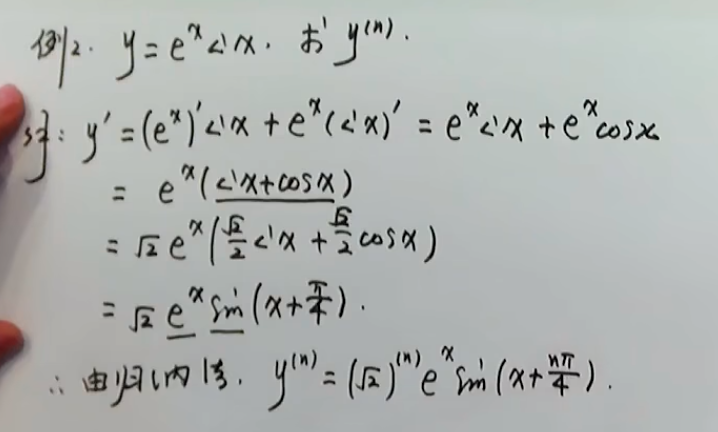 例2. y=e^x sinx. 求 y^(n).
解: y'=(e^x)'sinx+e^x(sinx)'=e^x sinx+e^x cosx
=e^x(sinx+cosx)
=√2 e^x(√2/2 sinx+√2/2 cosx)
=√2 e^x sin(x+π/4).
∴ 由归纳法. y^(n)=(√2)^(n) e^x sin(x+nπ/4).